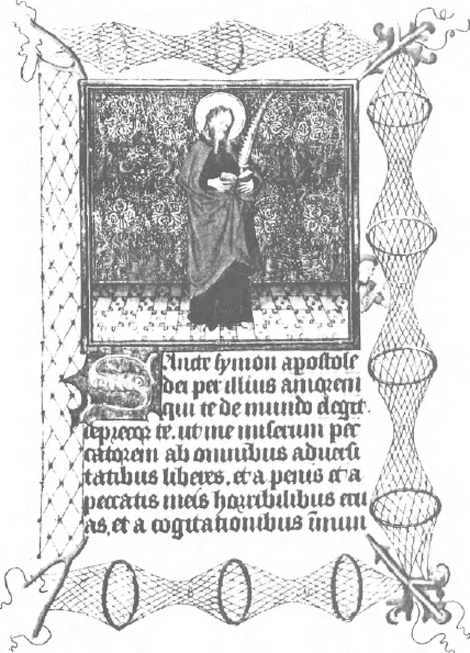 Sancte symon apostole
dei per illius amorem
qui te de mundo elegit.
deprecor te. ut me miserum pec
catorem ab omnibus adversi
tatibus liberes. et a penis et a
peccatis meis horribilibus eru
as. et a cogitationibus inmun